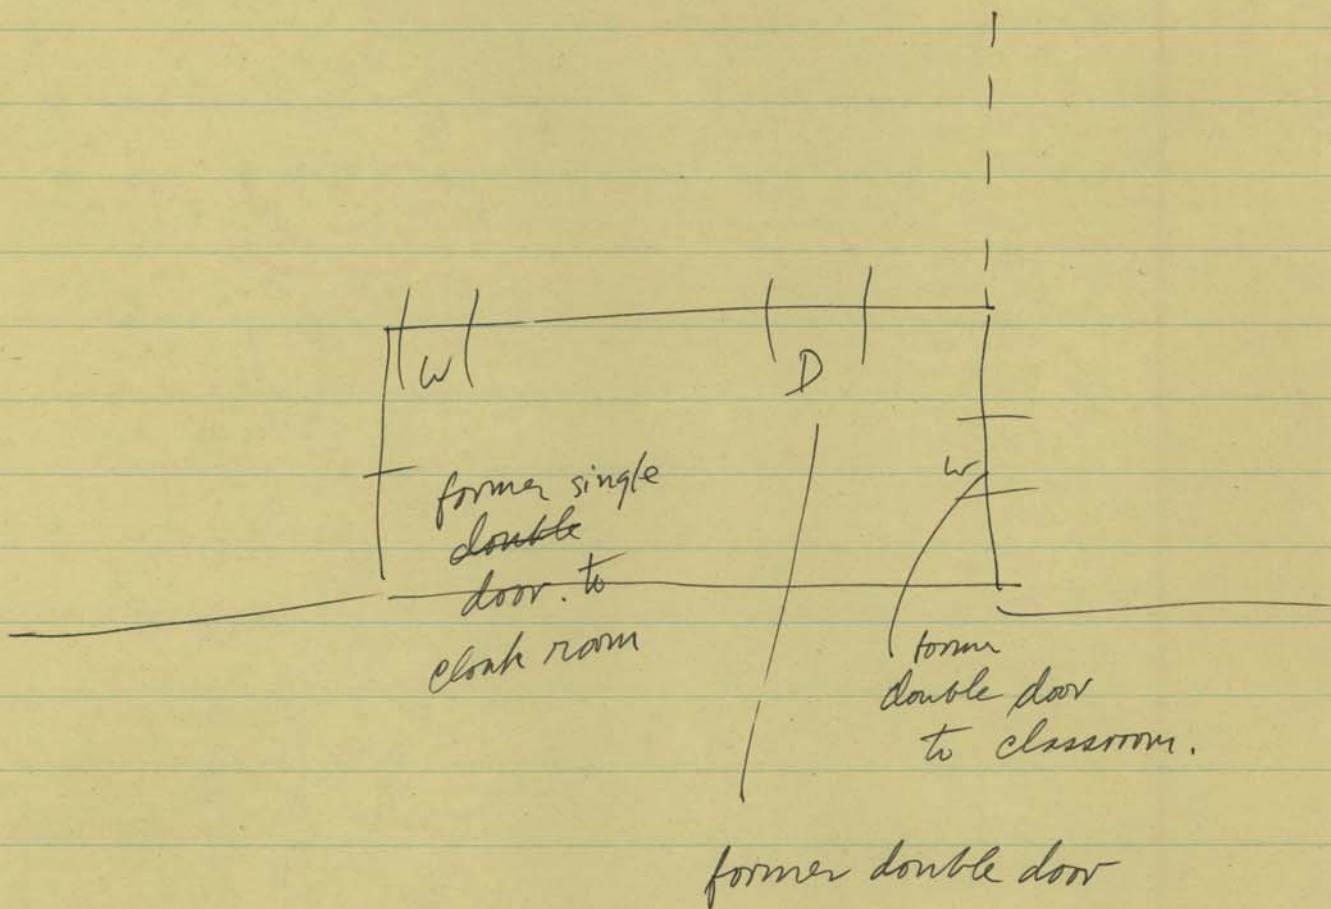 W
D
W
former single
double
door. to
cloak room
former
double door
to classroom.
former double door